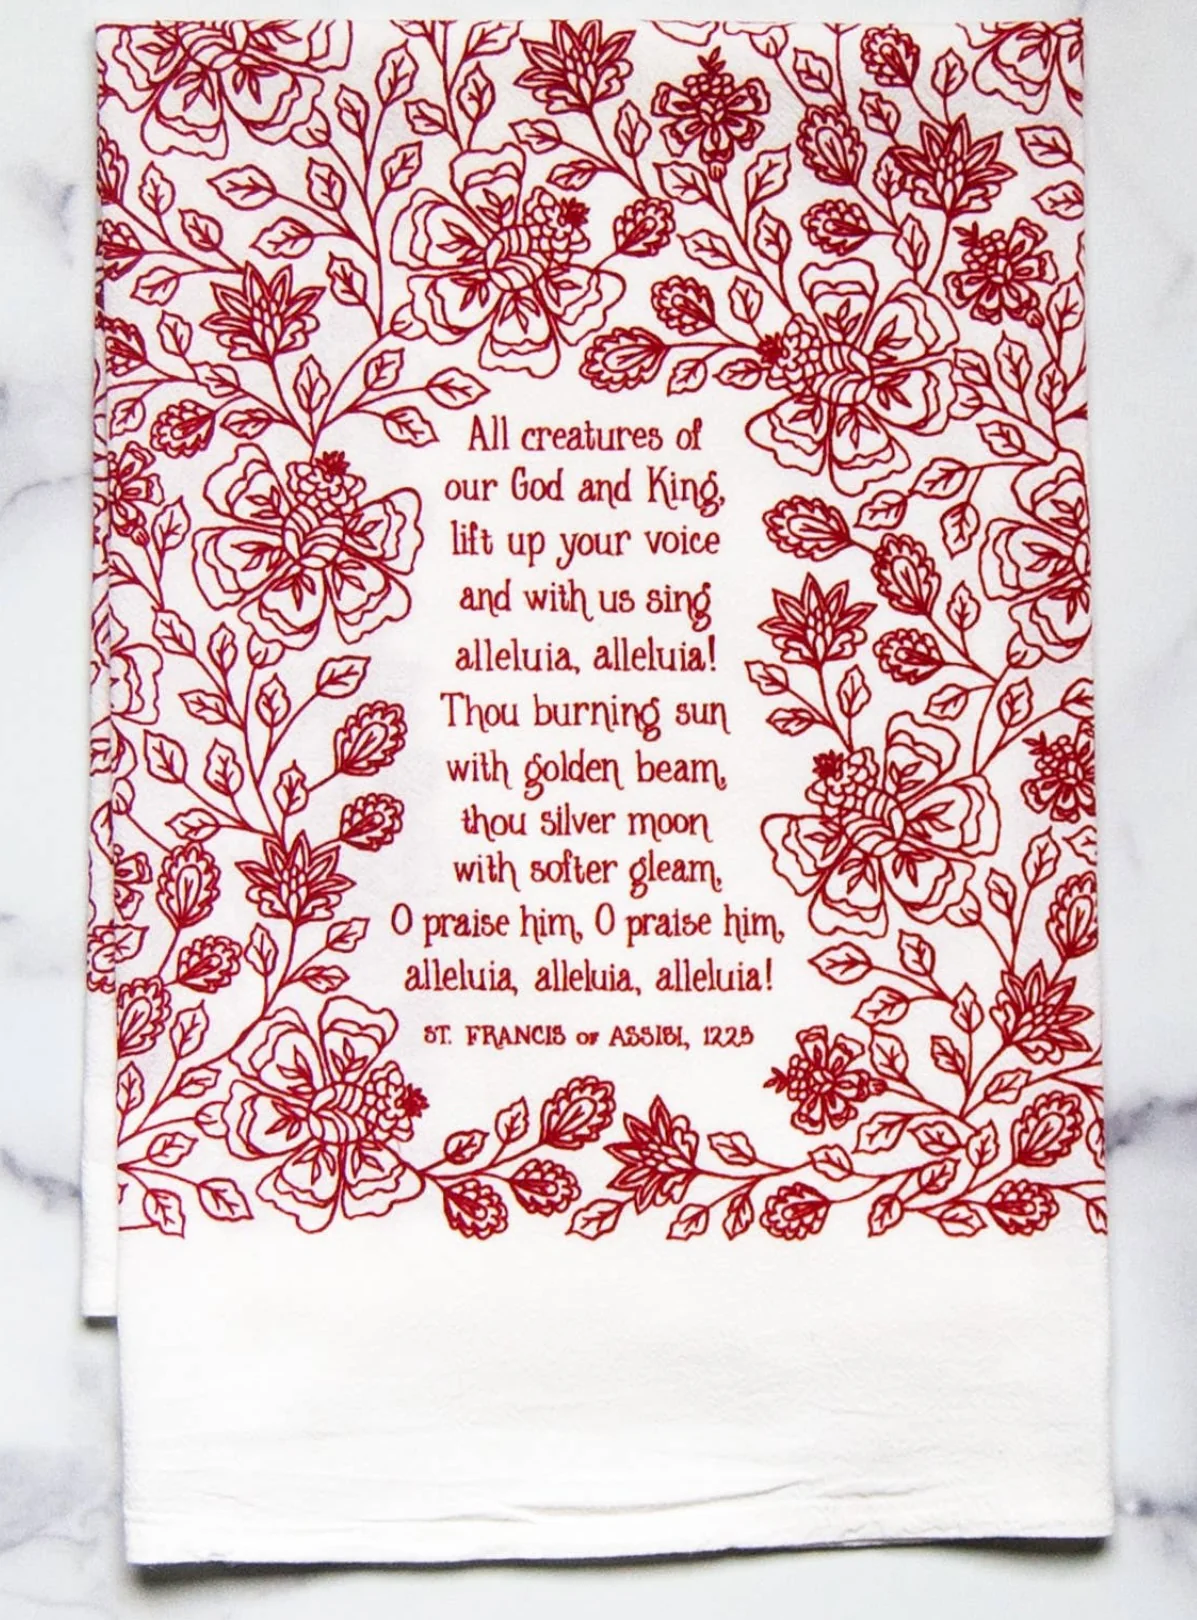 All creatures of
our God and King,
lift up your voice
and with us sing
alleluia, alleluia!
Thou burning sun
with golden beam,
thou silver moon
with softer gleam,
O praise him, O praise him,
alleluia, alleluia, alleluia!
ST. FRANCIS OF ASSISI, 1225